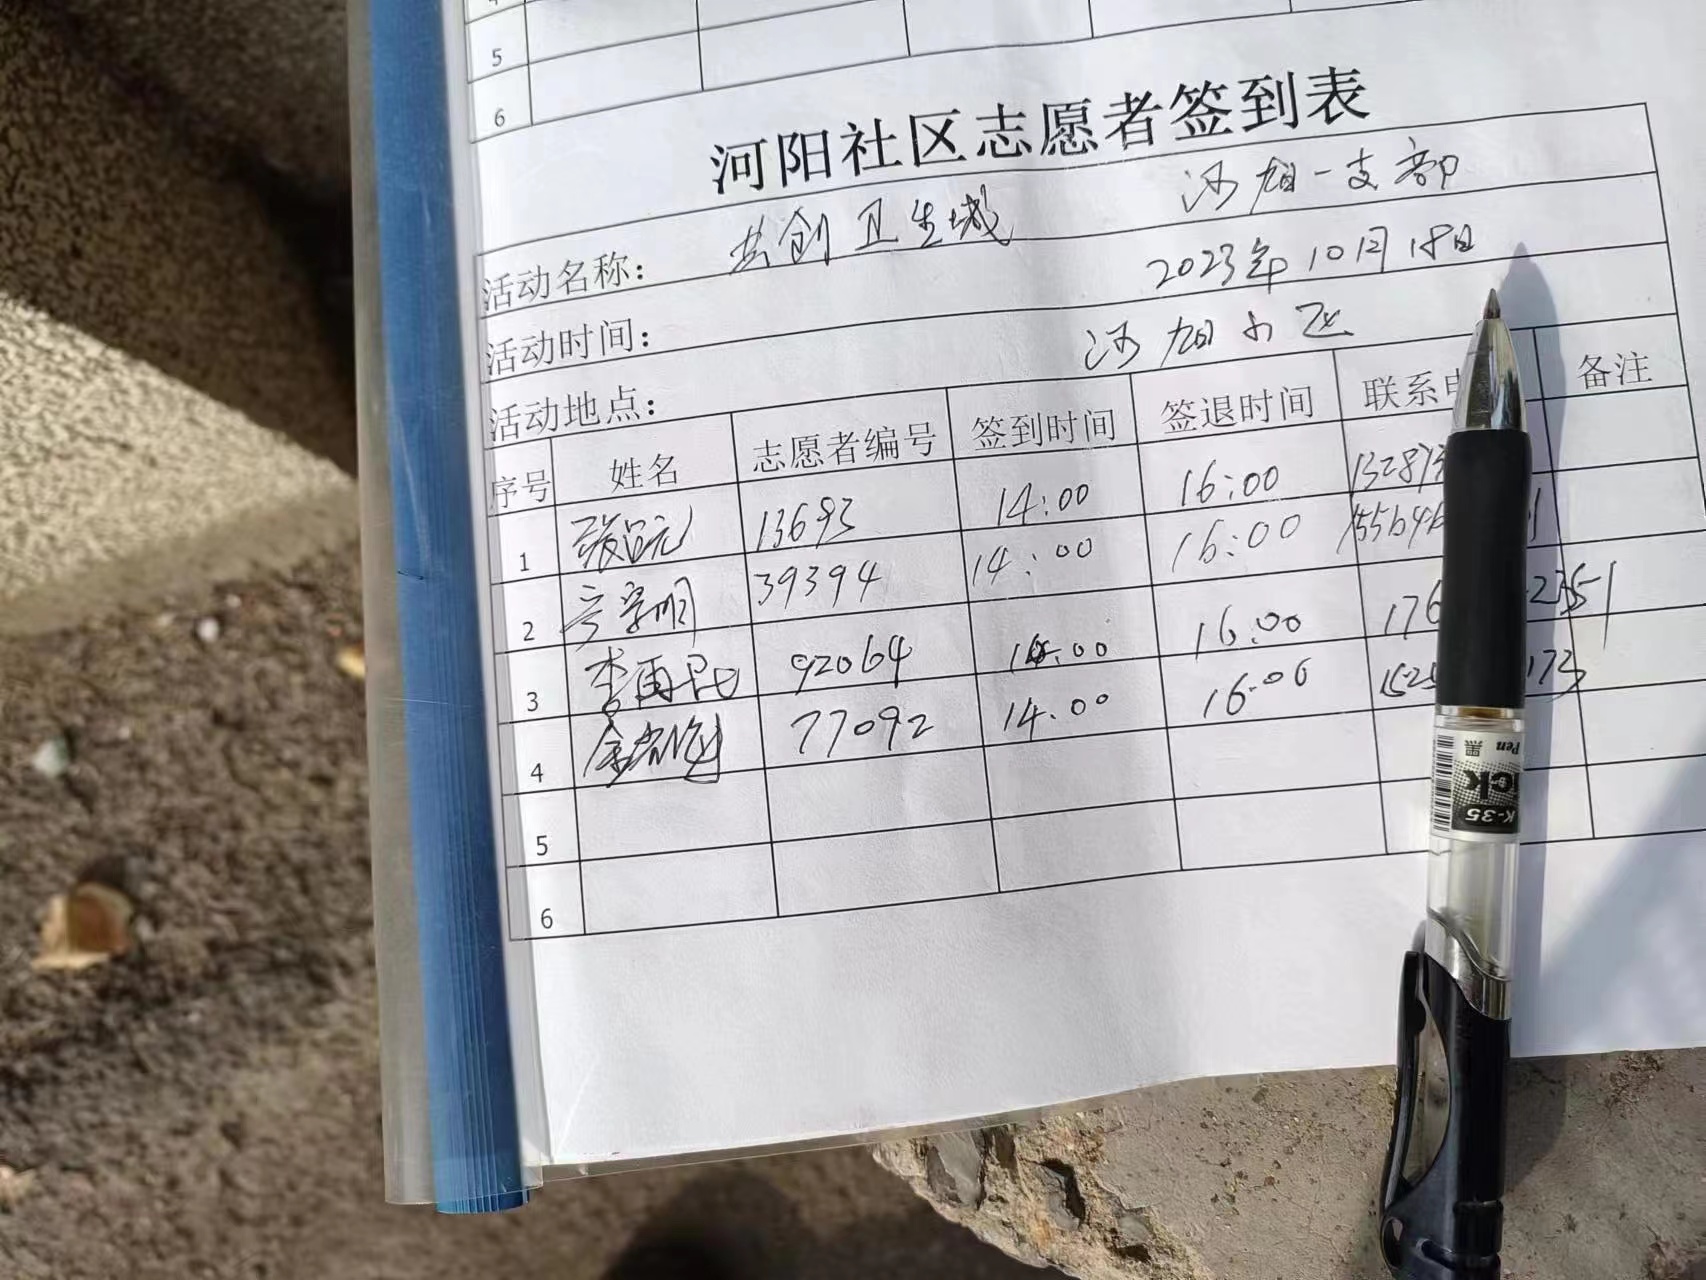 5
6
河阳社区志愿者签到表
活动名称: 共创卫生城 河旭一支部
活动时间: 2023年10月18日
活动地点: 河旭小区
序号 姓名 志愿者编号 签到时间 签退时间 联系电 备注
1 13693 14:00 16:00
2 39394 14:00 16:00
3 李雨昆 92064 14:00 16:00 176 2351
4 77092 14:00 16:00 173
5
6
黑 Pen
K-35